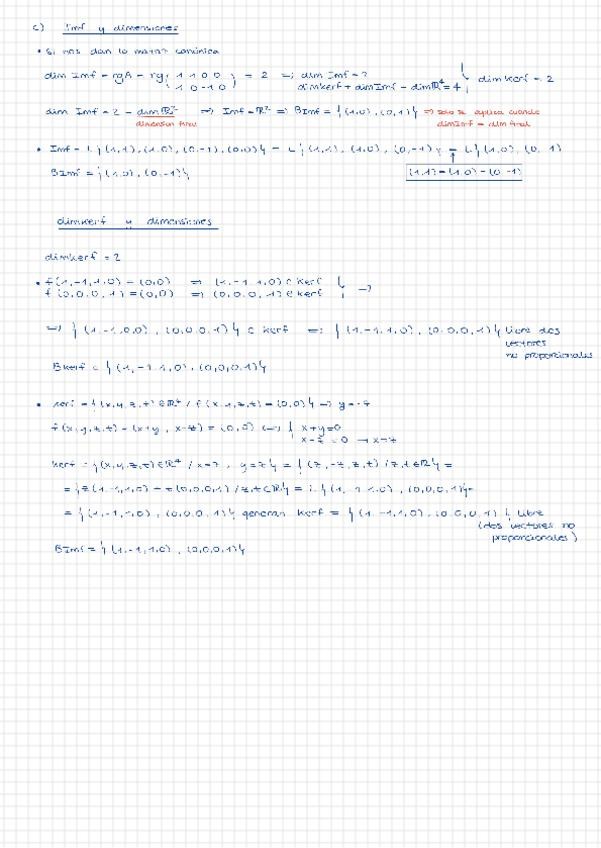 c) Imf y dimensiones
• Si nos dan la matriz canónica
dim Imf = rgA = rg ( 1 1 0 0 ) = 2 => dim Imf = 2 } dimkerf = 2
1 0 -1 0 dimkerf + dimImf = dimR⁴ = 4
dim Imf = 2 = dimR² => Imf = R² => BImf = {(1,0), (0,1)} => solo se aplica cuando
dimension final dimImf = dim final
• Imf = L{(1,1), (1,0), (0,-1), (0,0)} = L{(1,1), (1,0), (0,-1)} = L{(1,0), (0,-1)}
BImf = {(1,0), (0,-1)} (1,1) = (1,0) - (0,-1)
dimkerf y dimensiones
dimkerf = 2
• f(1,-1,1,0) = (0,0) => (1,-1,1,0) ∈ kerf } =>
f(0,0,0,1) = (0,0) => (0,0,0,1) ∈ kerf
=> {(1,-1,0,0), (0,0,0,1)} ⊂ kerf => {(1,-1,1,0), (0,0,0,1)} libre dos
vectores
no proporcionales
Bkerf = {(1,-1,1,0), (0,0,0,1)}
• kerf = {(x,y,z,t) ∈ R⁴ / f(x,y,z,t) = (0,0)} => y = -z
f(x,y,z,t) = (x+y, x-z) = (0,0) <=> { x+y=0
x-z=0 → x=z
kerf = {(x,y,z,t) ∈ R⁴ / x=z, y=z} = {(z,-z,z,t) / z,t ∈ R} =
= {z(1,-1,1,0) + t(0,0,0,1) / z,t ∈ R} = L{(1,-1,1,0), (0,0,0,1)} =
= {(1,-1,1,0), (0,0,0,1)} generan kerf = {(1,-1,1,0), (0,0,0,1)} libre
(dos vectores no
proporcionales)
BImf = {(1,-1,1,0), (0,0,0,1)}